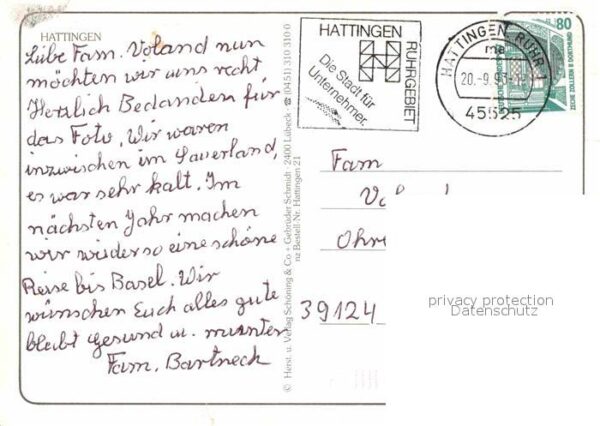 HATTINGEN
Lübe Fam. Voland nun
möchten wir uns recht
Herzlich Bedanden für
das Foto, Wir waren
inzwischen im Sauerland,
es war sehr kalt. Im
nächsten Jahr machen
wir wieder so eine schöne
Reise bis Basel. Wir
wünschen Euch alles gute
bleibt gesund u. munter
Fam. Bartneck
© Herst. u. Verlag Schöning & Co + Gebrüder Schmidt · 2400 Lübeck · ☎ (0451) 310 310-0
nz Bestell-Nr. Hattingen 21
HATTINGEN
RUHRGEBIET
Die Stadt für
Unternehmer.
HATTINGEN, RUHR 1
ma
20.-9.93
45525
80
ZECHE ZOLLERN II DORTMUND
Fam
Ohre
39124
privacy protection
Datenschutz